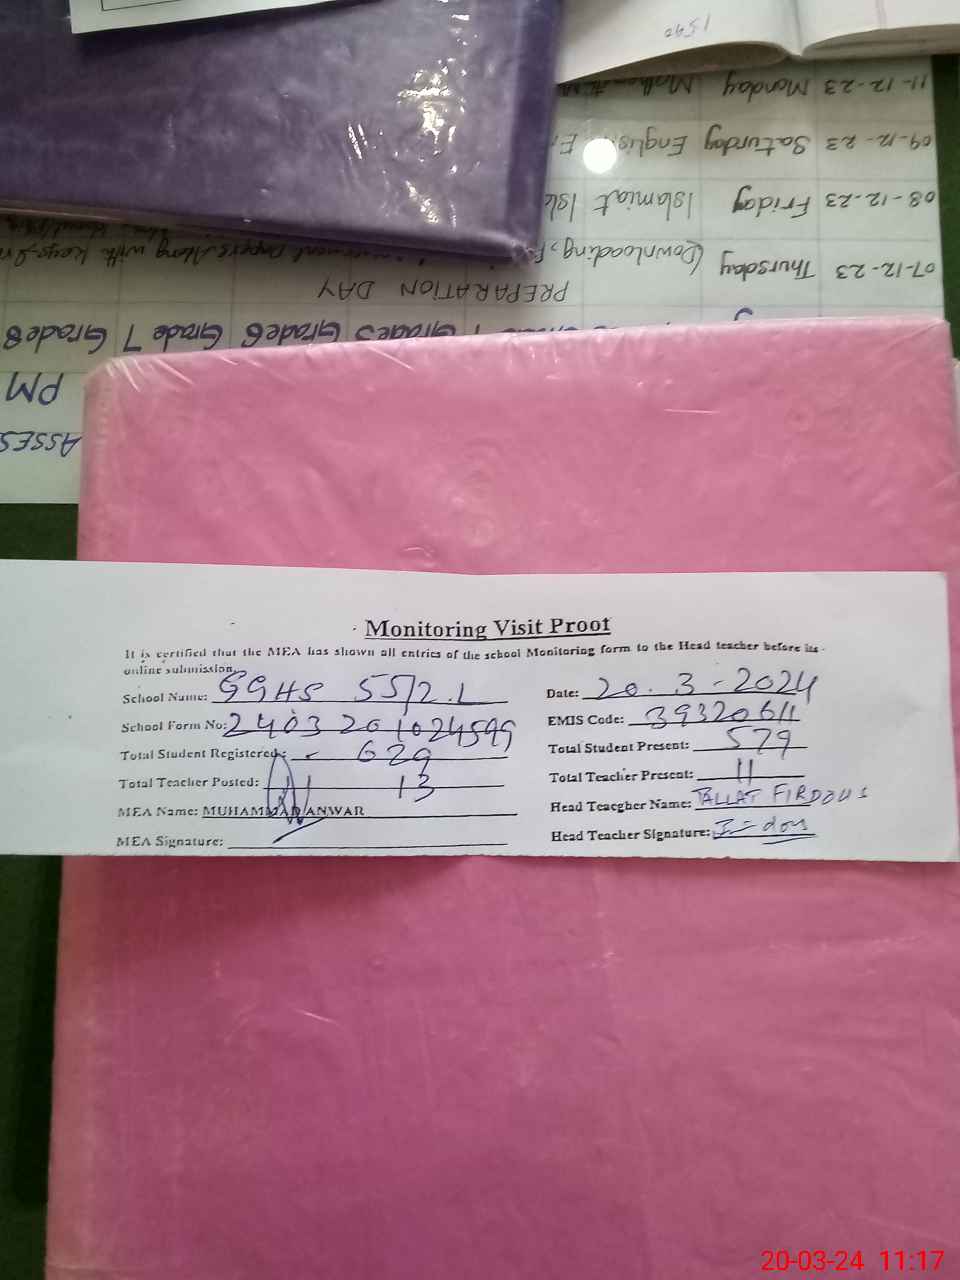 1590
11-12-23 Monday
09-12-23 Saturday English
08-12-23 Friday Islamiat Isl
07-12-23 Thursday (Downloading,
papers Along with keys
PREPARATION DAY
Grade5 Grade6 Grade 7 Grade8
PM
ASSES
Monitoring Visit Proof
It is certified that the MEA has shown all entries of the school Monitoring form to the Head teacher before its
online submission.
School Name: GGHS 55/2.L
Date: 20.3-2024
School Form No: 2403201024599
EMIS Code: 39320611
Total Student Registered: 629
Total Student Present: 579
Total Teacher Posted: 13
Total Teacher Present: 11
MEA Name: MUHAMMAD ANWAR
Head Teacgher Name: TALLAT FIRDOUS
MEA Signature:
Head Teacher Signature:
20-03-24 11:17